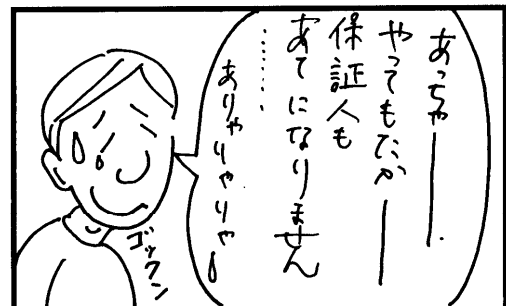 あっちゃーー.
やってもたかーー
保証人も
あてになりません
………
ありゃりゃりゃ
ゴックン